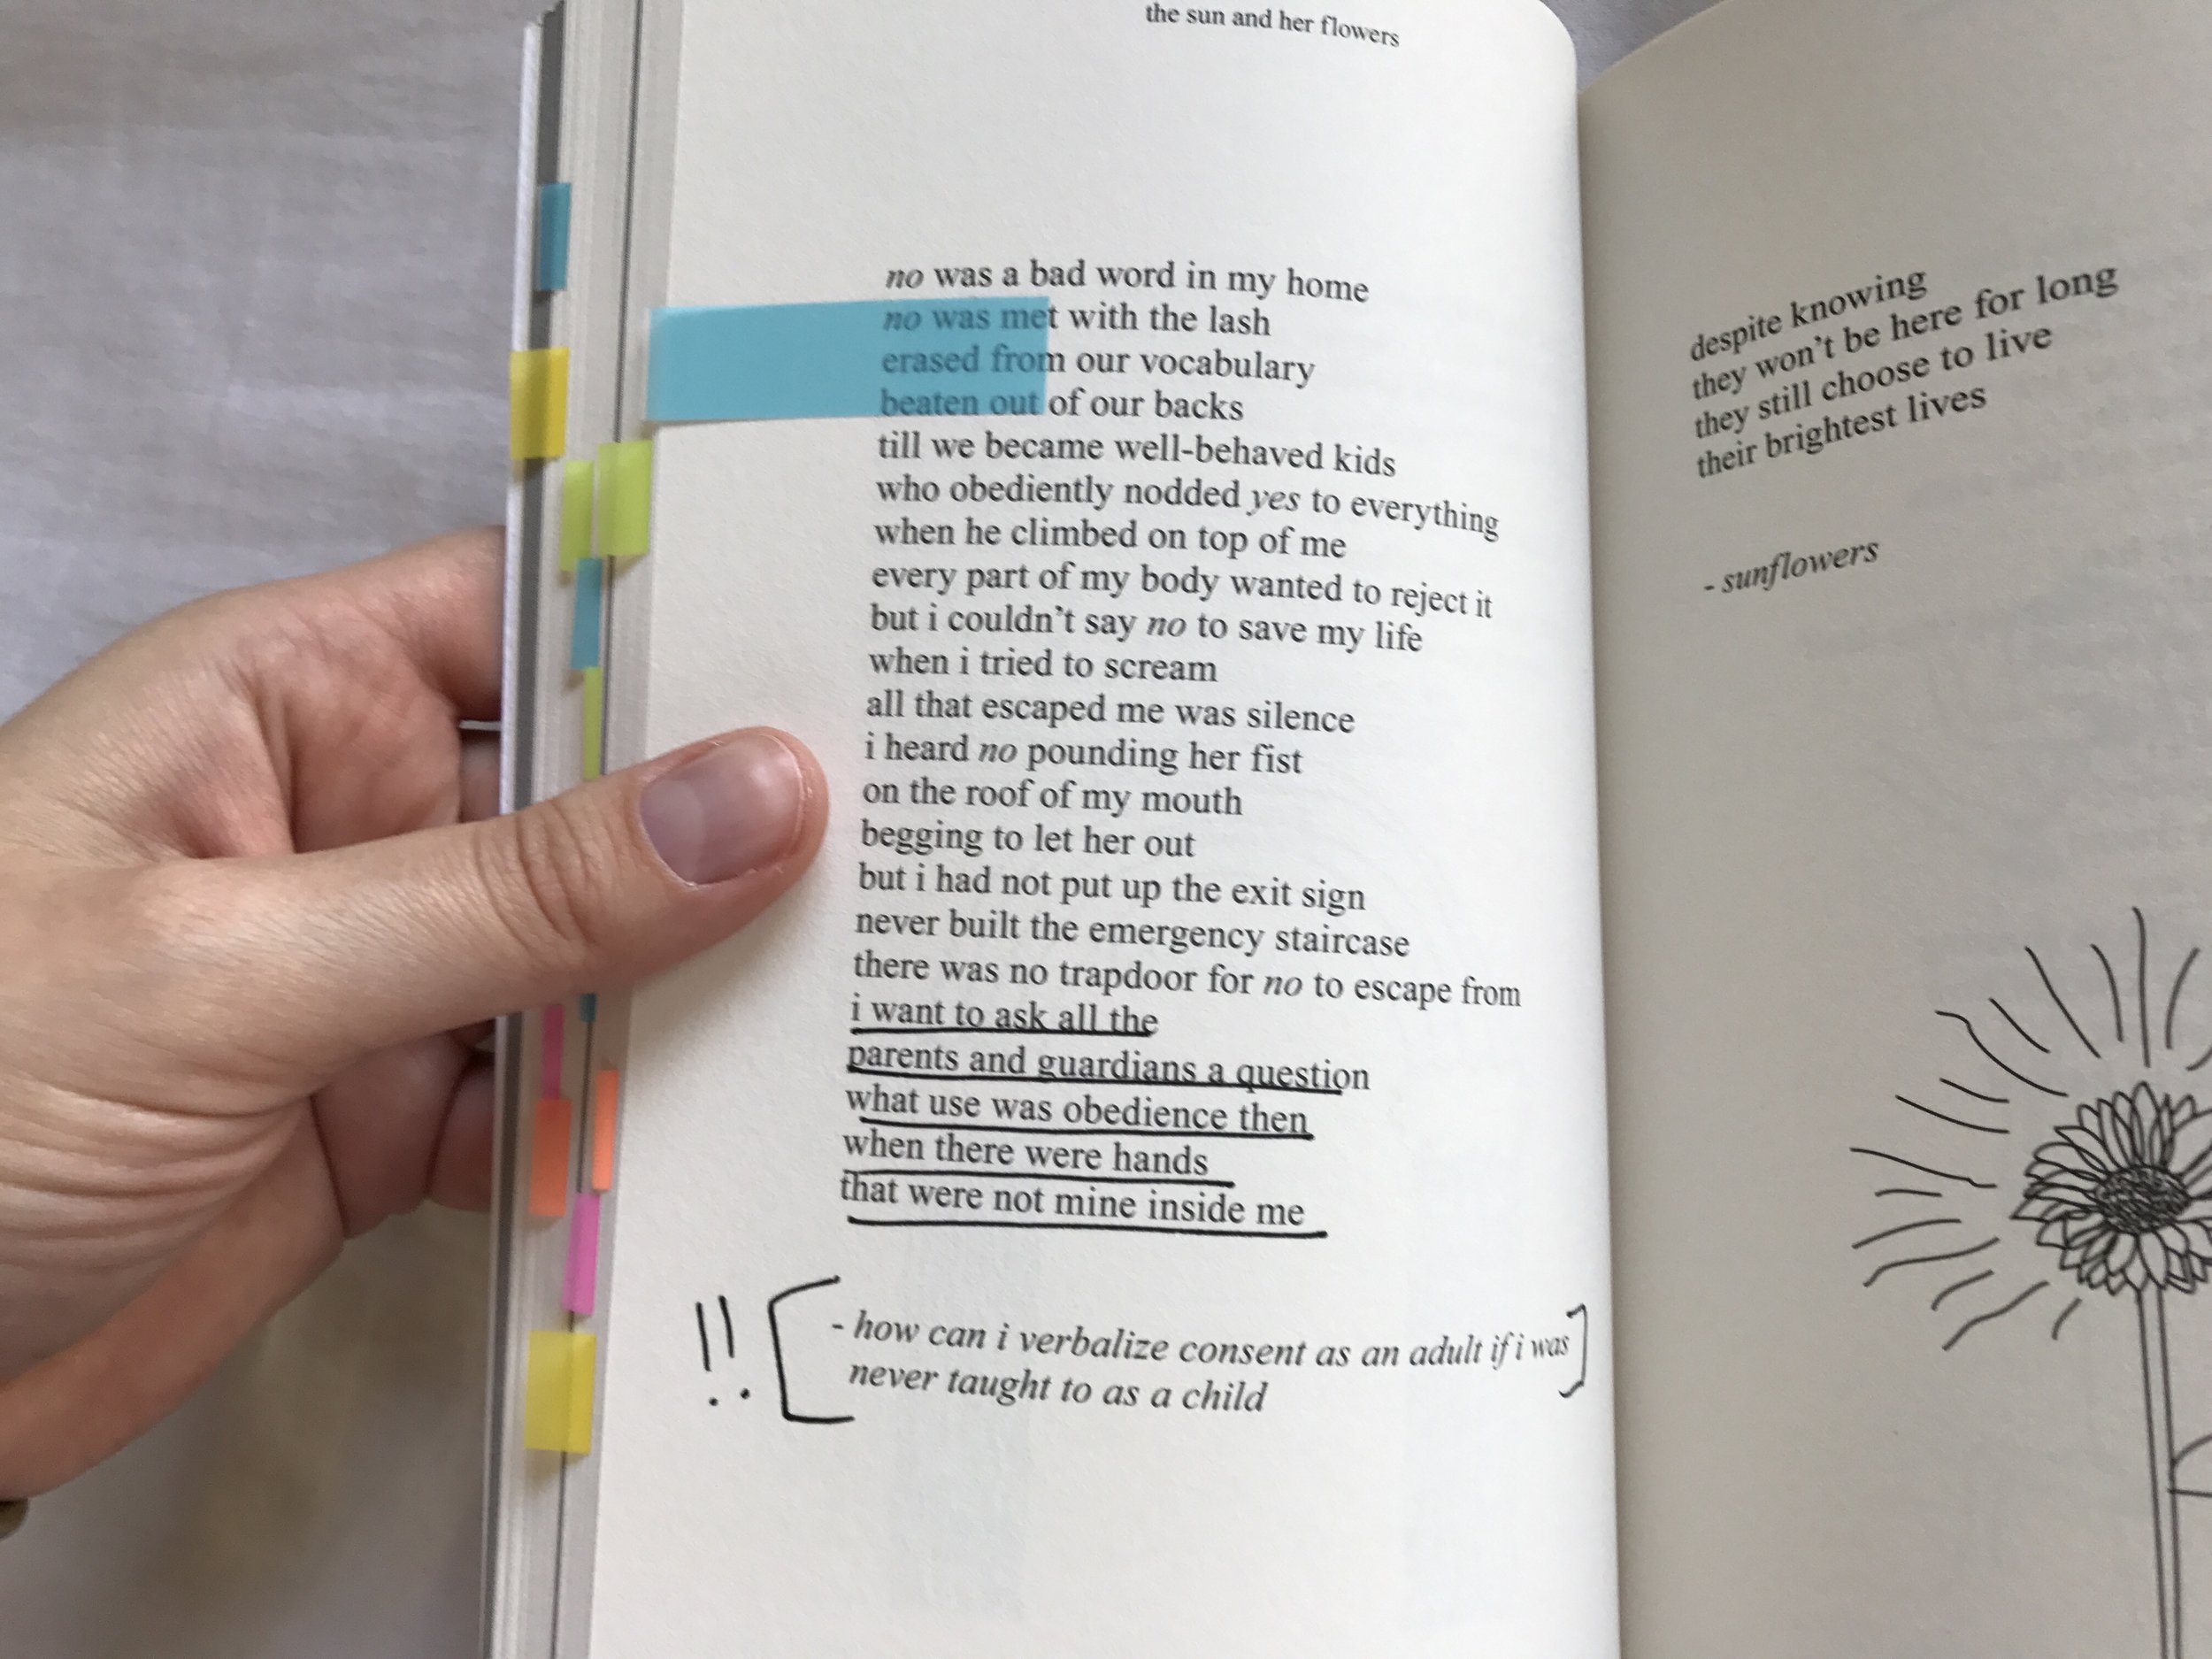 the sun and her flowers
no was a bad word in my home
no was met with the lash
erased from our vocabulary
beaten out of our backs
till we became well-behaved kids
who obediently nodded yes to everything
when he climbed on top of me
every part of my body wanted to reject it
but i couldn't say no to save my life
when i tried to scream
all that escaped me was silence
i heard no pounding her fist
on the roof of my mouth
begging to let her out
but i had not put up the exit sign
never built the emergency staircase
there was no trapdoor for no to escape from
i want to ask all the
parents and guardians a question
what use was obedience then
when there were hands
that were not mine inside me
!! [- how can i verbalize consent as an adult if i was]
never taught to as a child
despite knowing
they won't be here for long
they still choose to live
their brightest lives
- sunflowers